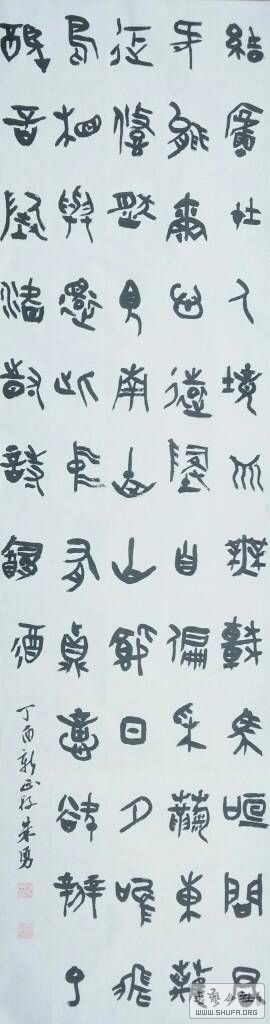 結廬在人境而無車馬喧問君
何能爾心遠地自偏采菊東籬
下悠然見南山山氣日夕佳飛
鳥相與還此中有真意欲辨已
忘言陶淵明詩飲酒
丁酉新正 朱勇
書藝公社
WWW.SHUFA.ORG